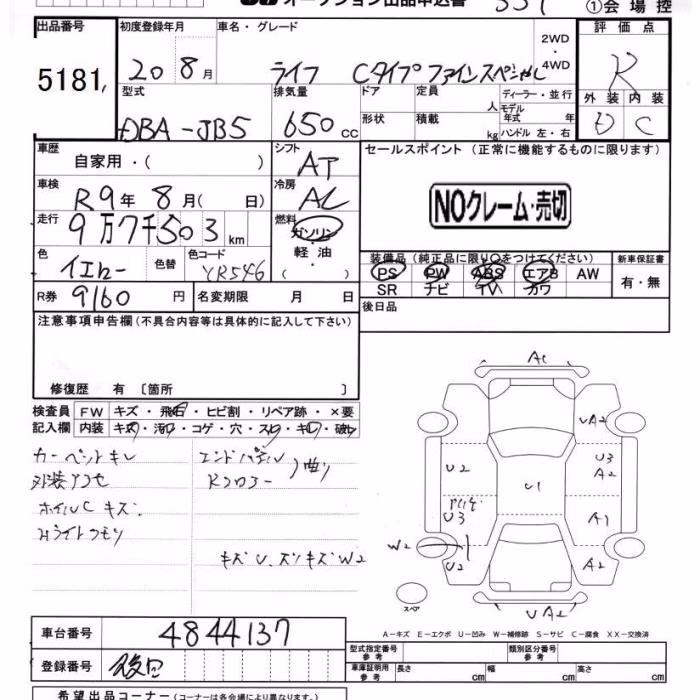 オークション出品申込書
①会場控
出品番号 初度登録年月 車名・グレード 2WD・4WD 評価点
5181 20 8月 ライフ Cタイプファインスペシャル R
型式 排気量 ドア 定員 人 ディーラー・並行 外装 内装
DBA-JB5 650 CC 形状 積載 kg モデル年式 年 ハンドル 左・右 D C
車歴 自家用・( ) シフト AT セールスポイント (正常に機能するものに限ります)
車検 R9年 8月( 日) 冷房 AC
NOクレーム・売切
走行 9万7千503km 燃料 ガソリン・軽油・( )
色 イエロー 色替 色コード YR546
装備品(純正品に限り○をつけてください) 新車保証書
PS PW ABS エアB AW 有・無
SR ナビ TV カワ
R券 9160円 名変期限 月 日 後日品
注意事項申告欄(不具合内容等は具体的に記入して下さい)
修復歴 有 [箇所 ]
検査員 FW キズ・飛石・ヒビ割・リペア跡・×要
記入欄 内装 キズ・汚れ・コゲ・穴・スレ・キレ・破れ
カーペットキレ エンドパネル
外装アセ Rフロアー 曲り
ホイルC キズ
Hライトクモリ
キズU、スリキズW2
AC
UA2
U2 U3 A2
U1
U3 A1
W2
U2 A2
UA2
スペア
A-キズ E-エクボ U-凹み W-補修跡 S-サビ C-腐食 XX-交換済
車台番号 4844137
登録番号 後日
型式指定番号 参考 類別区分番号 参考
車庫証明用 参考 長さ cm 幅 cm 高さ cm
希望出品コーナー(コーナーは各会場により異なります。)